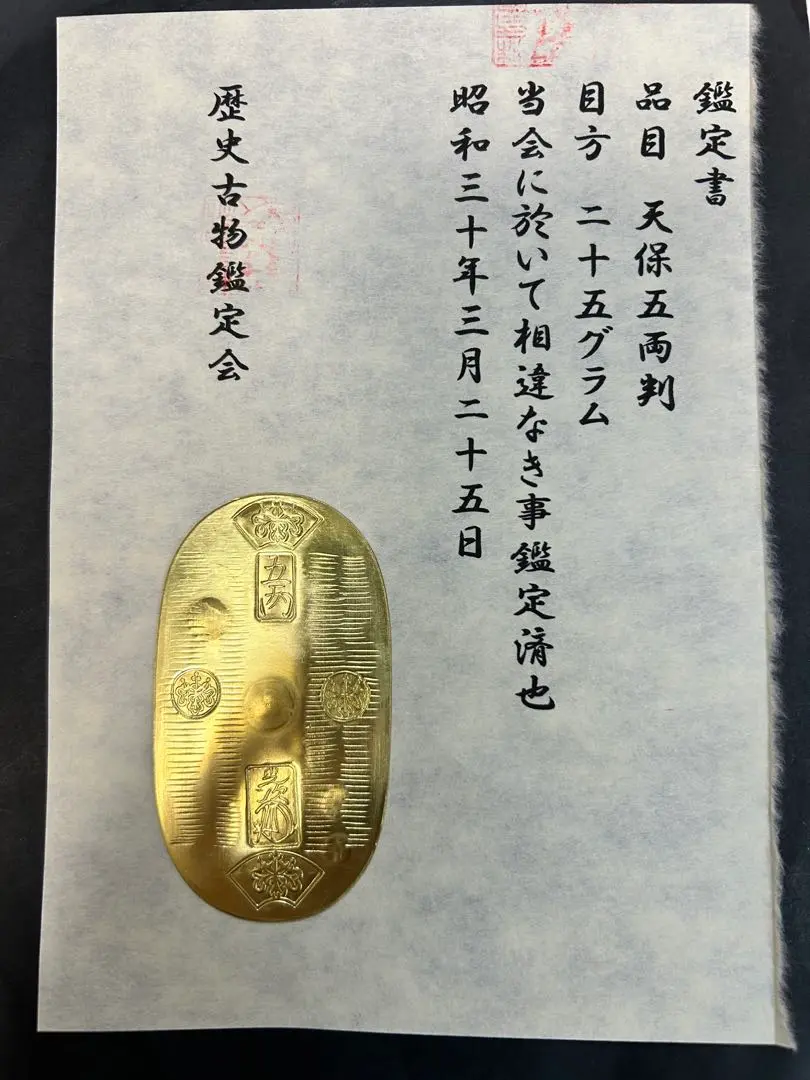 鑑定書
品目　天保五両判
目方　二十五グラム
当会に於いて相違なき事鑑定済也
昭和三十年三月二十五日
歴史古物鑑定会
五両